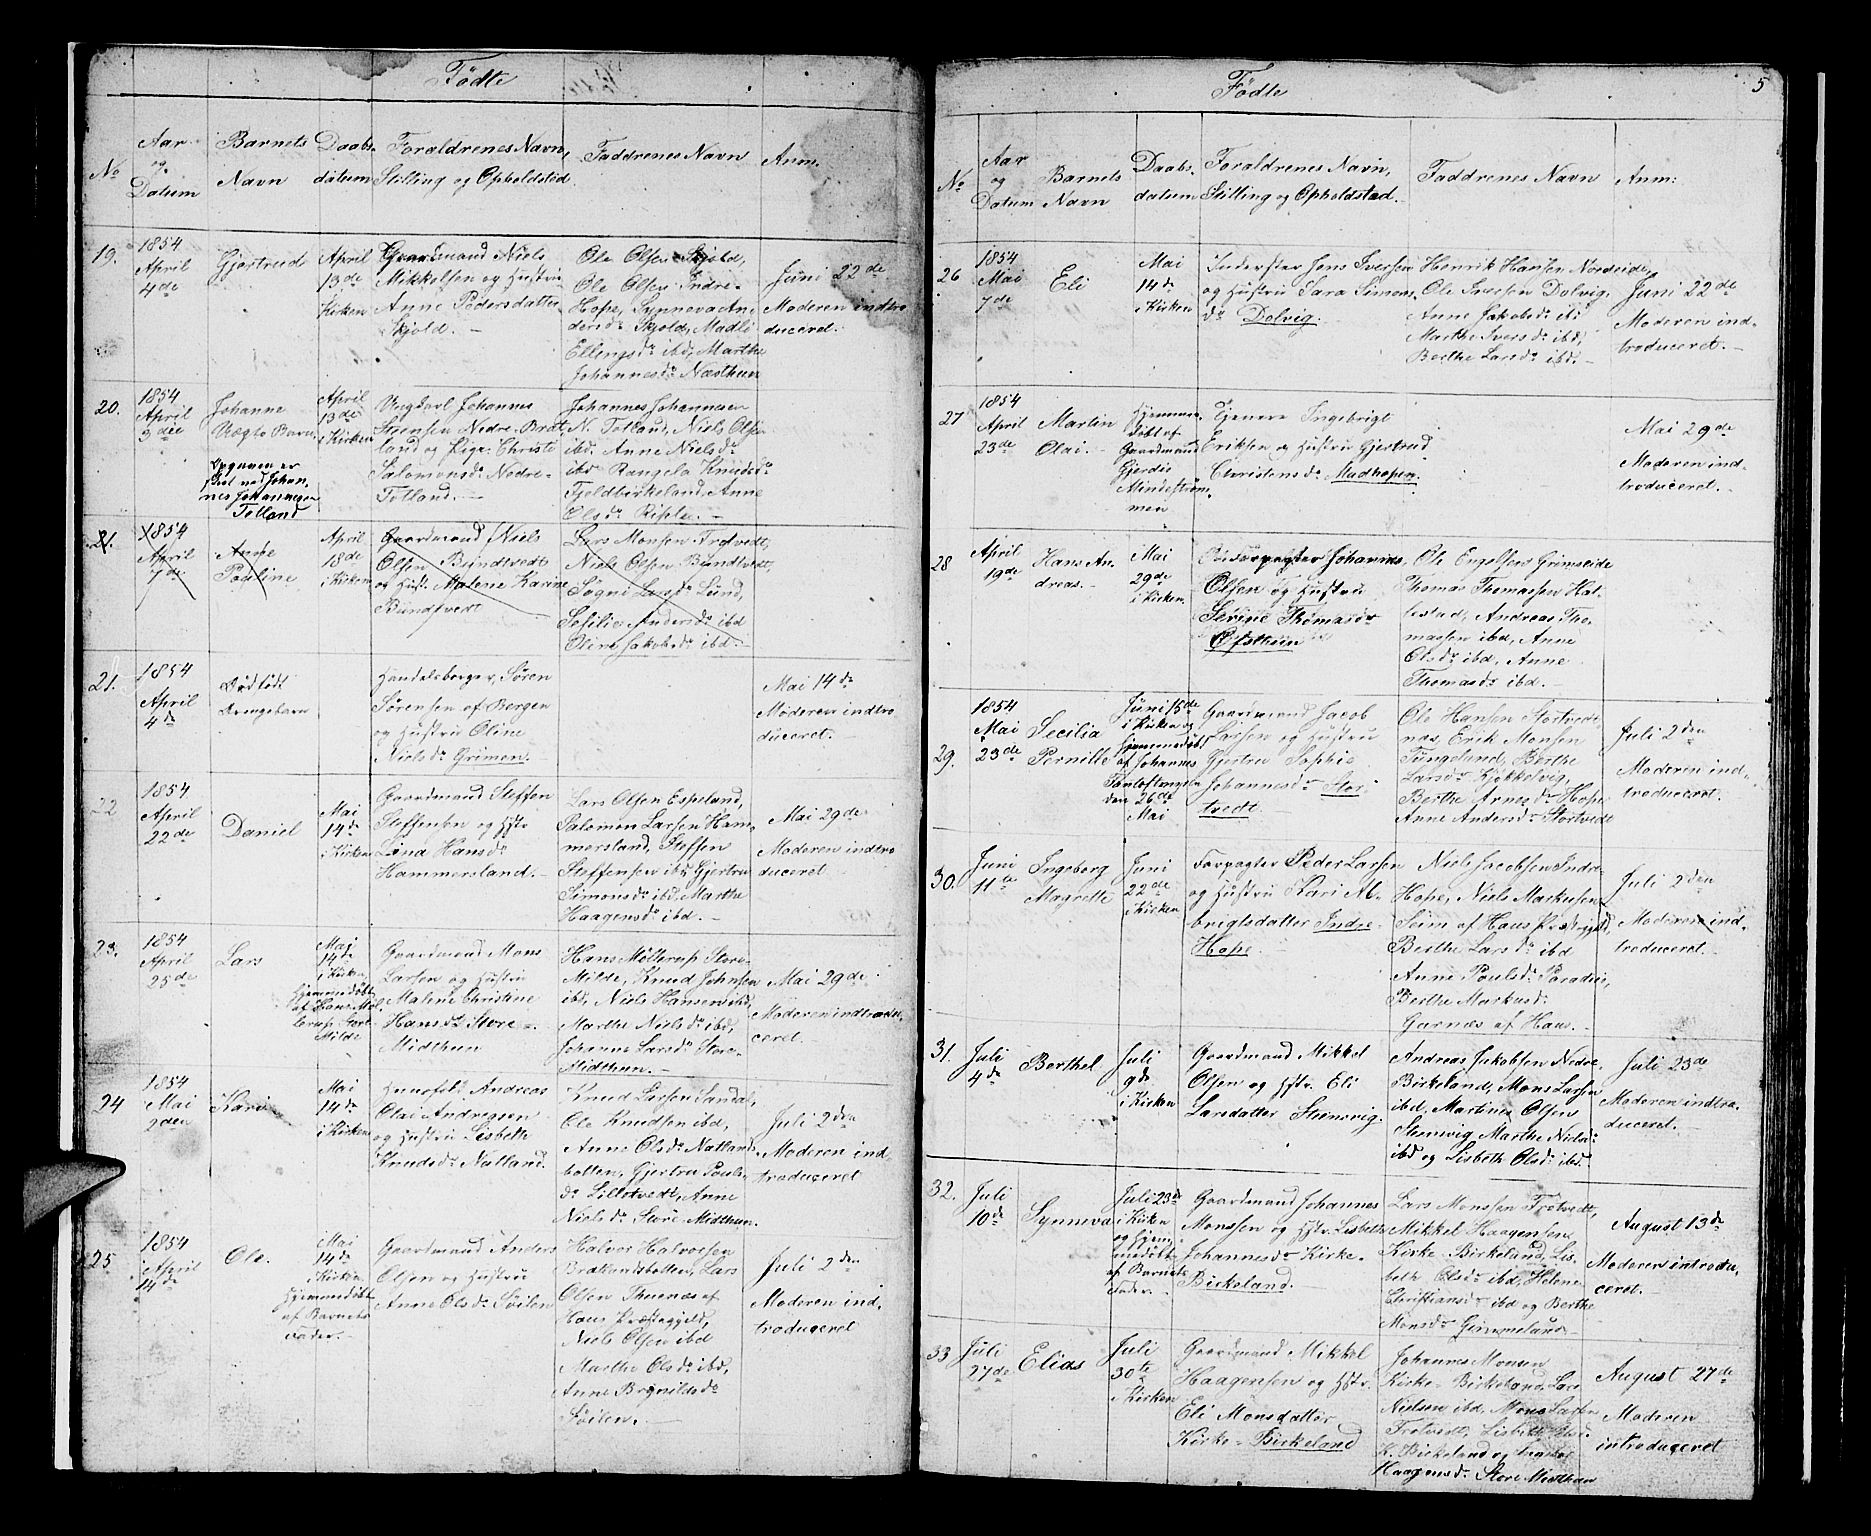 Fødte
No
Aar
og
Datum
Barnets
Navn
Daabs-
datum
Forældrenes Navn,
Stilling og Opholdsted
Faddrenes Navn
Anm.
19.
1854
April
4de
Gjertrud
April
13de
Kirken
Gaardmand Niels
Mikkelsen og Hustru
Anne Pedersdatter
Skjold. –
Ole Olsen Skjold,
Ole Olsen Indre-
Hope, Synneva An-
dersdr Skjold, Madli
Ellingsdr ibd, Marthe
Johannesdr Næsthun
Juni 22de
Moderen indtro
duceret.
20.
1854
April
3die
Johanne
Uægte Barn
Opgiven er
Johan-
nes Johannesen
Totland
April
13de
i Kirken
Ungkarl Johannes
Sørensen Nedre Bret-
land og Pige Christi
Salomonsdr Nedre-
Totland. –
Johannes Johannesen
N. Totland, Niels Olsen
ibd. Anne Nielsdr
ibd Rangela Knudsdr
Fjeldbirkeland, Anne
Olsdr Riple. –
21.
1854
April
7de
Anne
Pauline
April
18de
i Kirken
Gaardmand Niels
Olsen Bundtvedt
og Hust. Malene Karine
Bundtvedt
Lars Monsen Trotvedt,
Niels Olsen Bundtvedt,
Sogni Larsdr Lund,
Sesilie Andersdr ibd
Oline Jakobsdr ibd. –
21.
1854
April
4de
Dødfødt
Drengebarn
Handelsborger, Søren
Sørensen af Bergen
og Hustru Oline
Nielsdr Grimen. –
Mai 14de
Moderen indtro
duceret. –
22
1854
April
22de
Daniel
Mai
14de
i Kirken
Gaardmand Steffen
Steffensen og Hstr
Lina Hansdr
Hammersland. –
Lars Olsen Espeland,
Salomon Larsen Ham-
mersland, Steffen
Steffensen ibd, Gjertru
Simonsdr ibd, Marthe
Haagensdr ibd. –
Mai 29de
Moderen indtro
duceret –
23.
1854
April
25de
Lars
Mai
14de
i Kirken
hjemmedøbt
af Hans Møl-
lerup Store
Milde
Gaardmand Mons
Larsen og Hustru
Malene Christine
Hansdr Store-
Midthun
Hans Møllerup Store-
Milde, Knud Johnsen
ibd, Niels Hansen ibd,
Marthe Nielsdr ibd,
Johanne Larsdr Store-
Midthun. –
Mai 29de
Moderen indtrodu-
ceret.
24
1854
Mai
2den
Kari
Mai
14de
i Kirken
Andreas
Olai Andresen
og Hustru Lisbeth
Knudsdr Natland.
Knud Larsen Sandal,
Ole Knudsen ibd,
Anne Olsdr Natlands-
botten, Gjertru Pauls-
dr Lilletvedt, Anne
Nielsdr Store Midthun.
Juli 2den
Moderen ind-
troduceret
25
1854
April
14de
Ole.
Mai
14de
i Kirken
Hjemmedøbt
af Barnets
Fader. –
Gaardmand Anders
Olsen og Hustru
Anne Olsdr Søilen
Halvor Halvorsen
Brækendsbotten, Lars
Olsen Thuenæs af
Haus Præstegjeld,
Niels Olsen ibd
Marthe Olsdr ibd,
Anne Brynildsdr
Søilen. –
Juli 2den
Moderen ind-
troduceret
Fødte
5
No
Aar
og
Datum
Barnets
Navn
Daabs-
datum
Forældrenes Navn,
Stilling og Opholdstad.
Faddrenes Navn
Anm:
26
1854
Mai
7de
Eli
Mai
14de
i Kirken
Inderster Jens Iversen
og Hustru Sara Simons-
dr Dolvig.
Henrik Hansen Nordeide,
Ole Iversen Dolvig,
Anne Jakobsdr ibd
Marthe Iversdr ibd,
Berthe Larsdr ibd. –
Juni 22de
Moderen ind-
troduceret. –
27
1854
April
23de
Martin
Olai. –
Hjemme-
døbt af
Gaardmand
Gjerdis
Mindestrøm-
men
Tjenere Ingebrigt
Eriksen og Hustru Gjertrud
Christensdr Madhopen.
Mai 29de
Moderen ind-
troduceret. –
28
April
19de
Hans An-
dreas. –
Mai
29de
i Kirken
Forpagter Johannes
Olsen og Hustru
Serine Thomasdr
Øfsthun
Ole Engelsen Grimseide
Thomas Thomassen Hat-
lestad, Andreas Tho-
massen ibd, Anne
Olsdr ibd, Anne
Thomasdr ibd. –
29.
1854
Mai
23de
Secilia
Pernille
Juni 15de
i Kirken og
hjemmedøbt
af Johannes
Fanloftangen
den 26de
Mai
Gaardmand Jacob
Larsen og Hustru
Gjertru Sophie
Johannesdr Stor-
tvedt.
Ole Hansen Stortvedt
næs, Erik Monsen
Tungeland, Berthe
Larsdr Kjøkkelvig,
Berthe Arnesdr Hope
Anne Andersdr Stortvedt
Juli 2den
Moderen ind-
troduceret.
30.
Juni
11te
Ingeborg
Magrette
Juni
22de
i Kirken
Forpagter Peder Larsen
og Hustru Kari Al-
brigtsdatter Indre
Hope.
Niels Jacobsen Indre
Hope, Niels Markusen
Seim af Haus Præstegjeld,
Berthe Larsdr ibd
Anne Paulsdr Paradis,
Berthe Markusdr
Garnæs af Haus. –
Juli 2den
Moderen ind-
troduceret. –
31.
Juli
4de
Berthel
Juli
9de
i Kirken
Gaardmand Mikkel
Olsen og Hstr. Eli
Larsdatter Steinsvig.
Andreas Jakobsen Nedre
Birkeland, Mons Larsen
ibd, Martines Olsen
Stensvig Marthe Nielsdr
ibd og Lisbeth Olsdr ibd.
Juli 23de
Moderen indtro-
duceret. –
32.
Juli
10de
Synneva
Juli 23de
i Kirken
og hjem-
medøbt
af Barnets
Fader. –
Gaardmand Johannes
Monssen og Hstr. Lisbeth
Johannesdr Kirke-
Birkeland. –
Lars Monssen Trotvedt,
Mikkel Haagensen
Kirke-Birkeland, Lis-
beth Olsdr ibd, Helene
Christiansdr ibd og Berthe
Monsdr Gimmeland –
August 13de
Moderen introdu-
ceret. –
33
Juli
27de
Elias
Juli
30te
i Kirken
Gaardmand Mikkel
Haagensen og Hstr.
Eli Monsdatter
Kirke-Birkeland
Johannes Monsen
Kirke-Birkeland, Lars
Nielsen ibd, Mons Larsen
Trotvedt, Lisbeth
K. Birkeland og
Haagensdr Store Midthun
August 27de
Moderen
introduceret